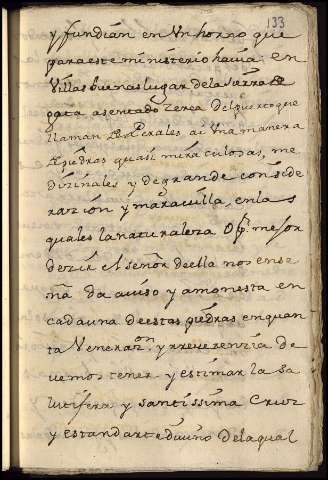 133
y fundian en vn horno que
para este ministerio hauia en
Villas buenas lugar de la sierra de
gata asentado zerca del puerto que
llaman Perales ai vna manera
de piedras quasi miraculosas, me
dizinales y de grande conside
razión y marauilla, en las
quales la naturaleza o p.r mejor
dezir el señor de ella nos ense
ña da auiso y amonesta en
cada vna de estas piedras en quan
ta Venerazon. y rreuerenzia de
uemos tener y estimar la sa
lutifera y santissima Cruz
y estandarte diuino de la qual